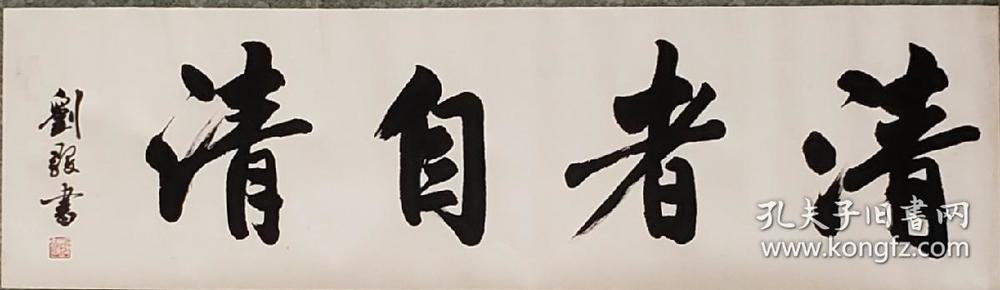 清者自清
劉毅書
孔夫子旧書网
www.kongfz.com